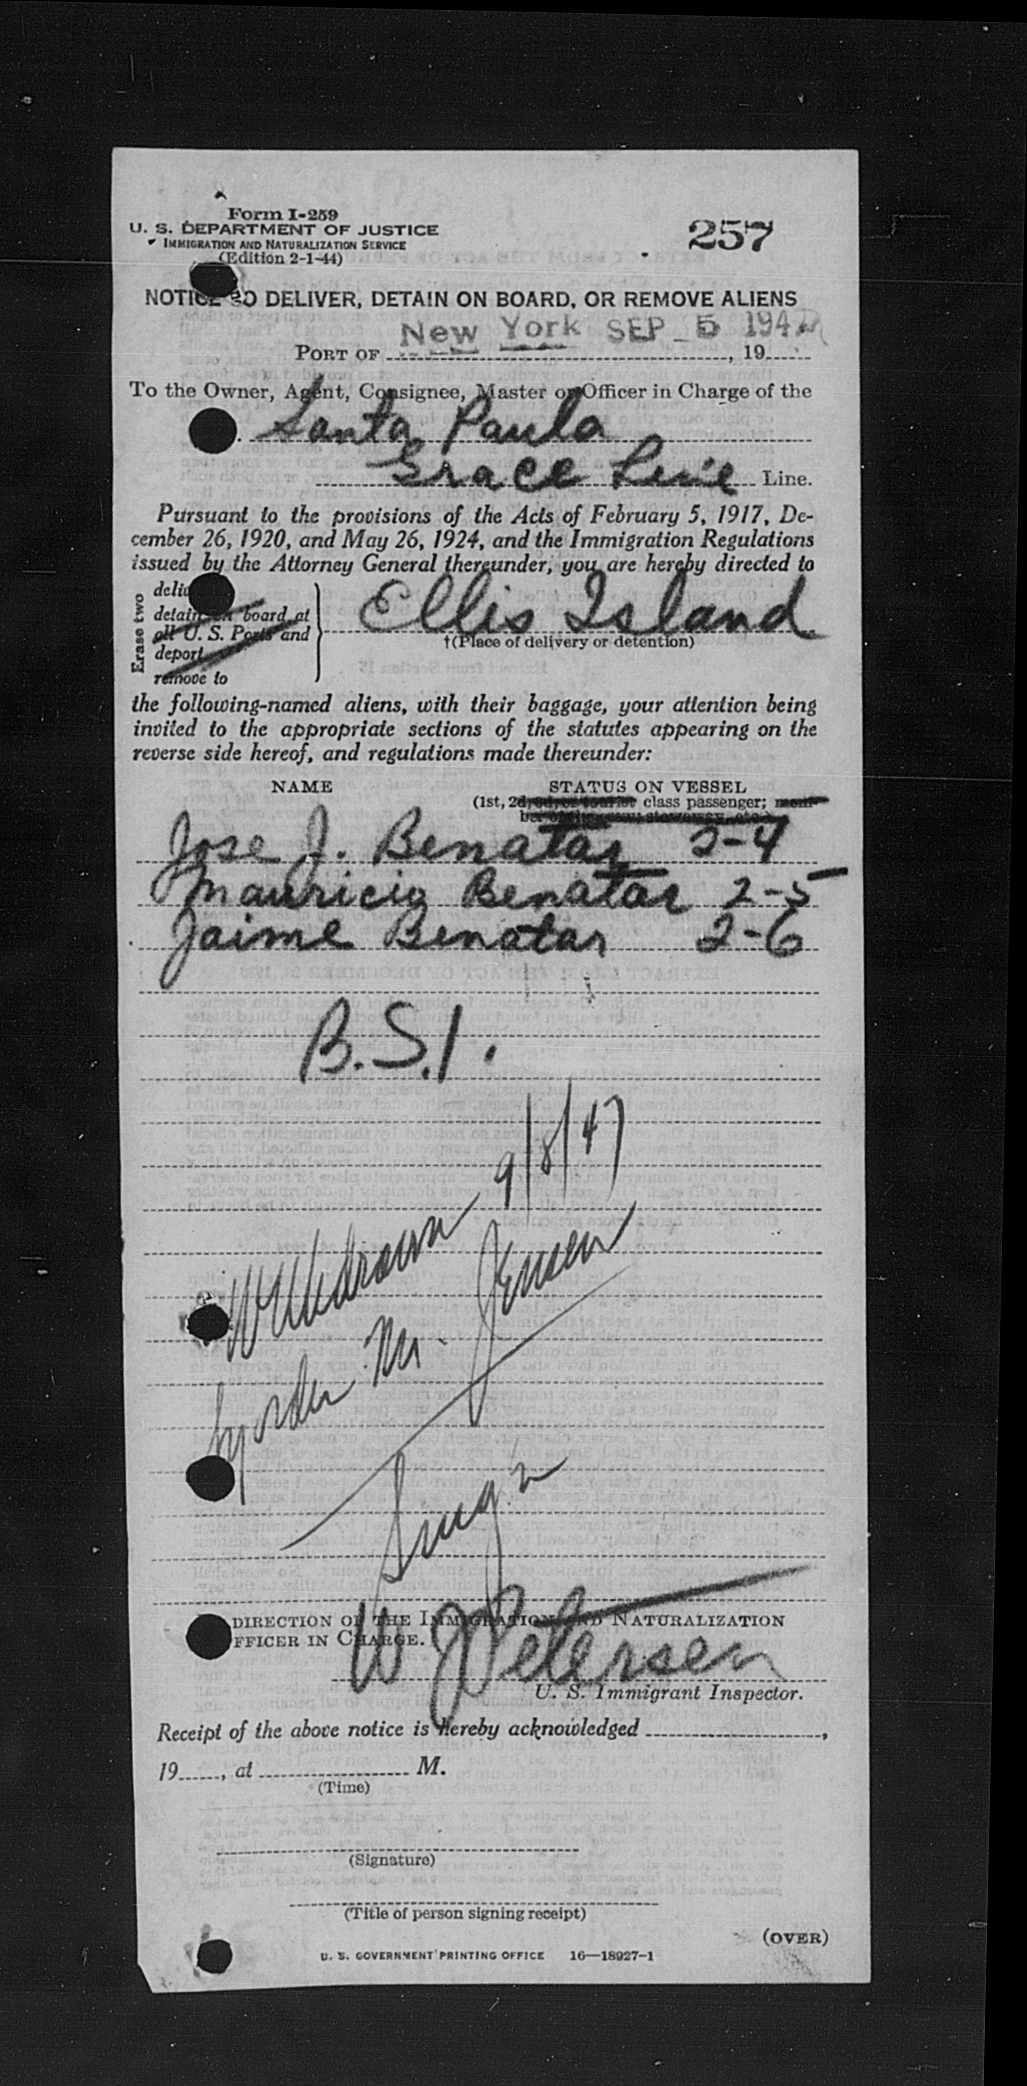 Form I-259
U. S. DEPARTMENT OF JUSTICE
IMMIGRATION AND NATURALIZATION SERVICE
(Edition 2-1-44)
257
NOTICE TO DELIVER, DETAIN ON BOARD, OR REMOVE ALIENS
New York SEP 5 194
PORT OF , 19
To the Owner, Agent, Consignee, Master or Officer in Charge of the
Santa Paula
Grace Line Line.
Pursuant to the provisions of the Acts of February 5, 1917, De-
cember 26, 1920, and May 26, 1924, and the Immigration Regulations
issued by the Attorney General thereunder, you are hereby directed to
Erase two
deliver
detain on board at
all U. S. Ports and
deport
remove to
Ellis Island
†(Place of delivery or detention)
the following-named aliens, with their baggage, your attention being
invited to the appropriate sections of the statutes appearing on the
reverse side hereof, and regulations made thereunder:
NAME STATUS ON VESSEL
(1st, 2d, class passenger; mem-
Jose J. Benatar 2-4
Mauricio Benatar 2-5
Jaime Benatar 2-6
B.S.I.
Withdrawn 9/8/47
by order Mr. Jensen
W J Petersen
DIRECTION OF THE IMMIGRATION AND NATURALIZATION
OFFICER IN CHARGE.
U. S. Immigrant Inspector.
Receipt of the above notice is hereby acknowledged ,
19 , at M.
(Time)
(Signature)
(Title of person signing receipt)
(OVER)
U. S. GOVERNMENT PRINTING OFFICE 16—18927-1